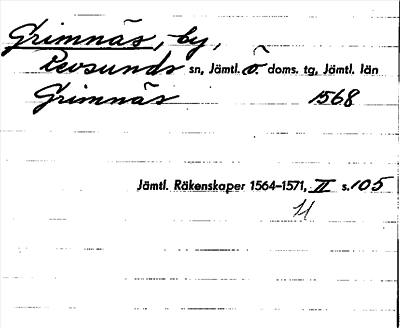 Grimnäs, -by,
Revsunds sn, Jämtl. ö. doms. tg, Jämtl. län
Grimnäs 1568
Jämtl. Räkenskaper 1564–1571, II s. 105